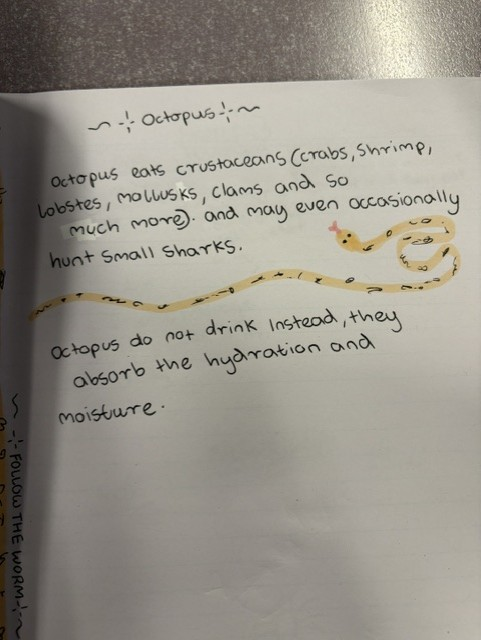 ~ -¦- Octopus -¦- ~
Octopus eats crustaceans (crabs, shrimp,
lobstes, mollusks, clams and so
much more). and may even occasionally
hunt small sharks.
Octopus do not drink Instead, they
absorb the hydration and
moisture.
~ -¦- FOLLOW THE WORM -¦- ~